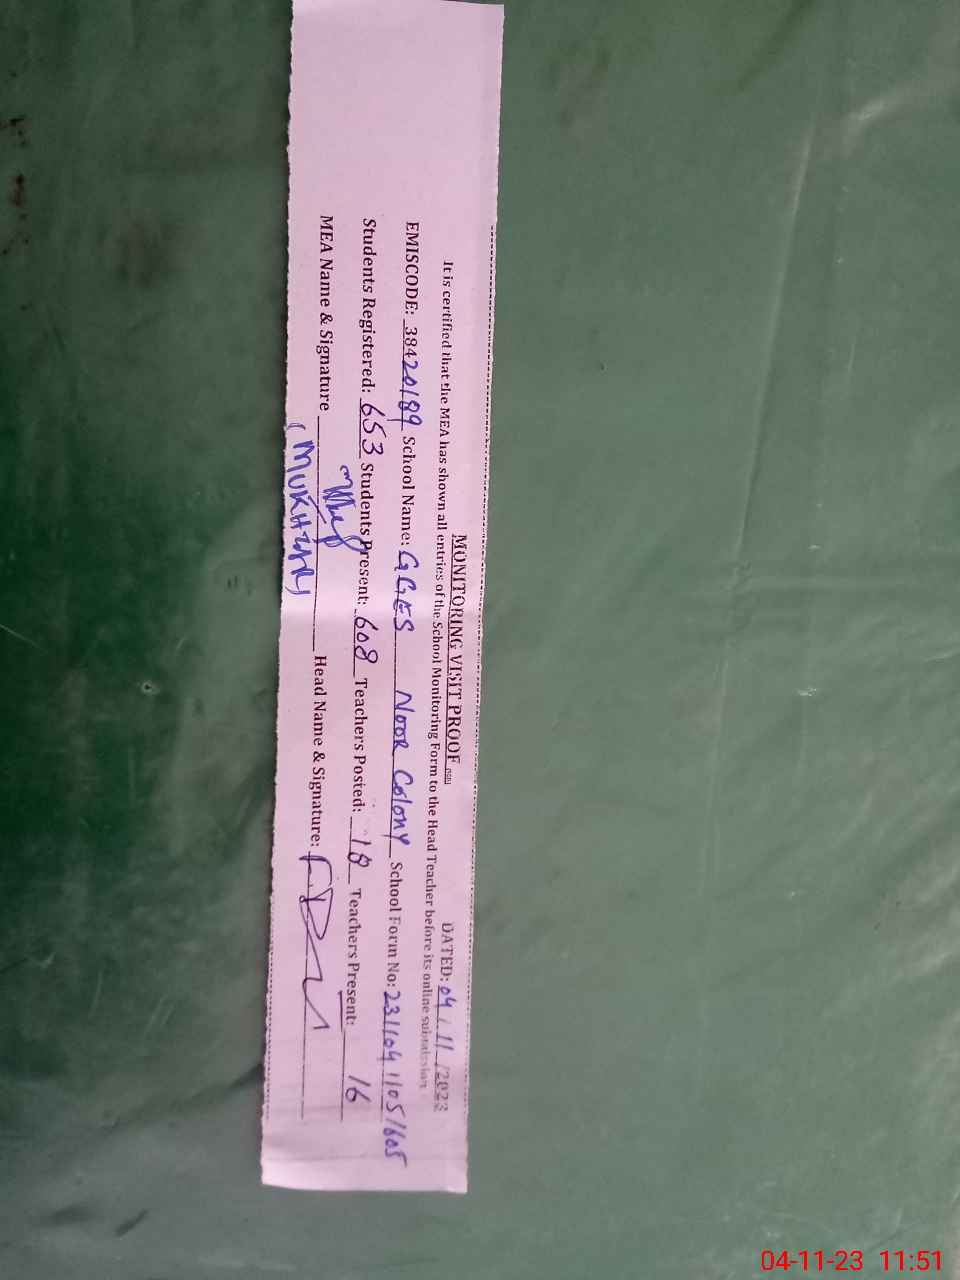 MONITORING VISIT PROOF
DATED: 04/11/2023
It is certified that the MEA has shown all entries of the School Monitoring Form to the Head Teacher before its online submission
EMISCODE: 38420189 School Name: GGES Noor Colony School Form No: 23110411051605
Students Registered: 653 Students Present: 608 Teachers Posted: 18 Teachers Present: 16
MEA Name & Signature Head Name & Signature:
(MUKHTAR)
04-11-23 11:51